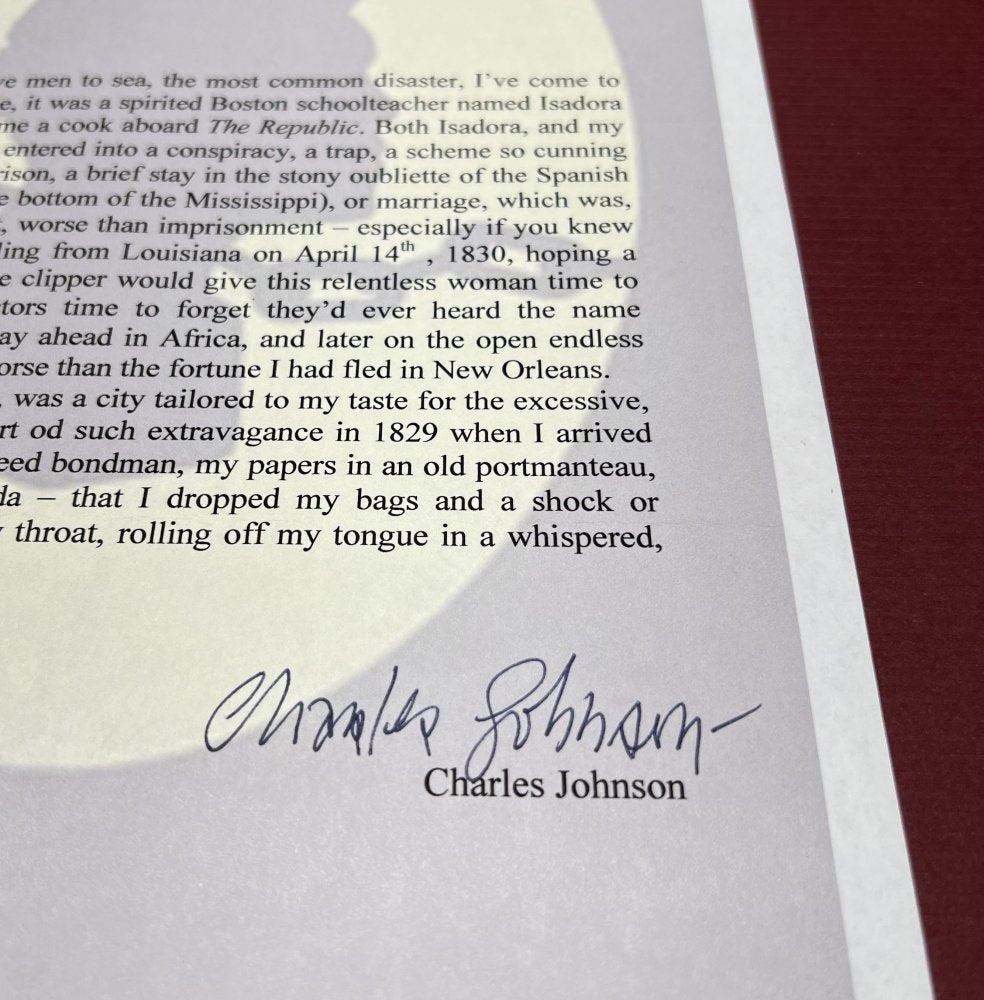 ve men to sea, the most common disaster, I've come to
e, it was a spirited Boston schoolteacher named Isadora
me a cook aboard The Republic. Both Isadora, and my
entered into a conspiracy, a trap, a scheme so cunning
rison, a brief stay in the stony oubliette of the Spanish
e bottom of the Mississippi), or marriage, which was,
, worse than imprisonment – especially if you knew
ling from Louisiana on April 14th , 1830, hoping a
e clipper would give this relentless woman time to
tors time to forget they'd ever heard the name
ay ahead in Africa, and later on the open endless
orse than the fortune I had fled in New Orleans.
, was a city tailored to my taste for the excessive,
rt od such extravagance in 1829 when I arrived
eed bondman, my papers in an old portmanteau,
da – that I dropped my bags and a shock or
throat, rolling off my tongue in a whispered,
Charles Johnson
Charles Johnson